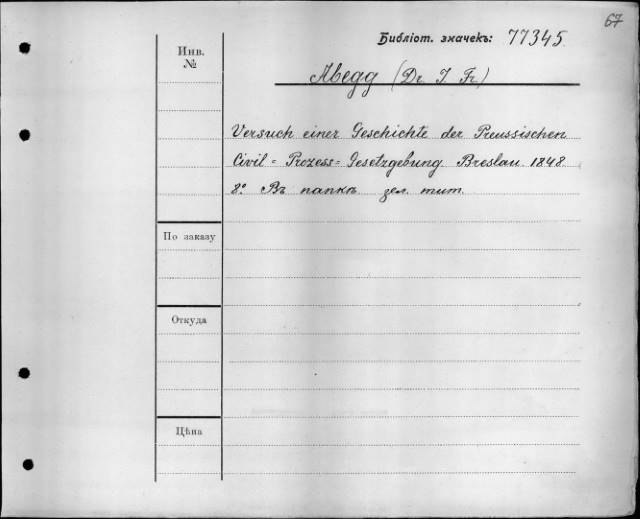 67
Библіот. значекъ: 77345.
Инв.
№
Abegg (Dr J. Fr.)
Versuch einer Geschichte der Preussischen
Civil = Prozess = Gesetzgebung Breslau. 1848.
8º. Въ папкѣ зел. тит.
По заказу
Откуда
Цѣна